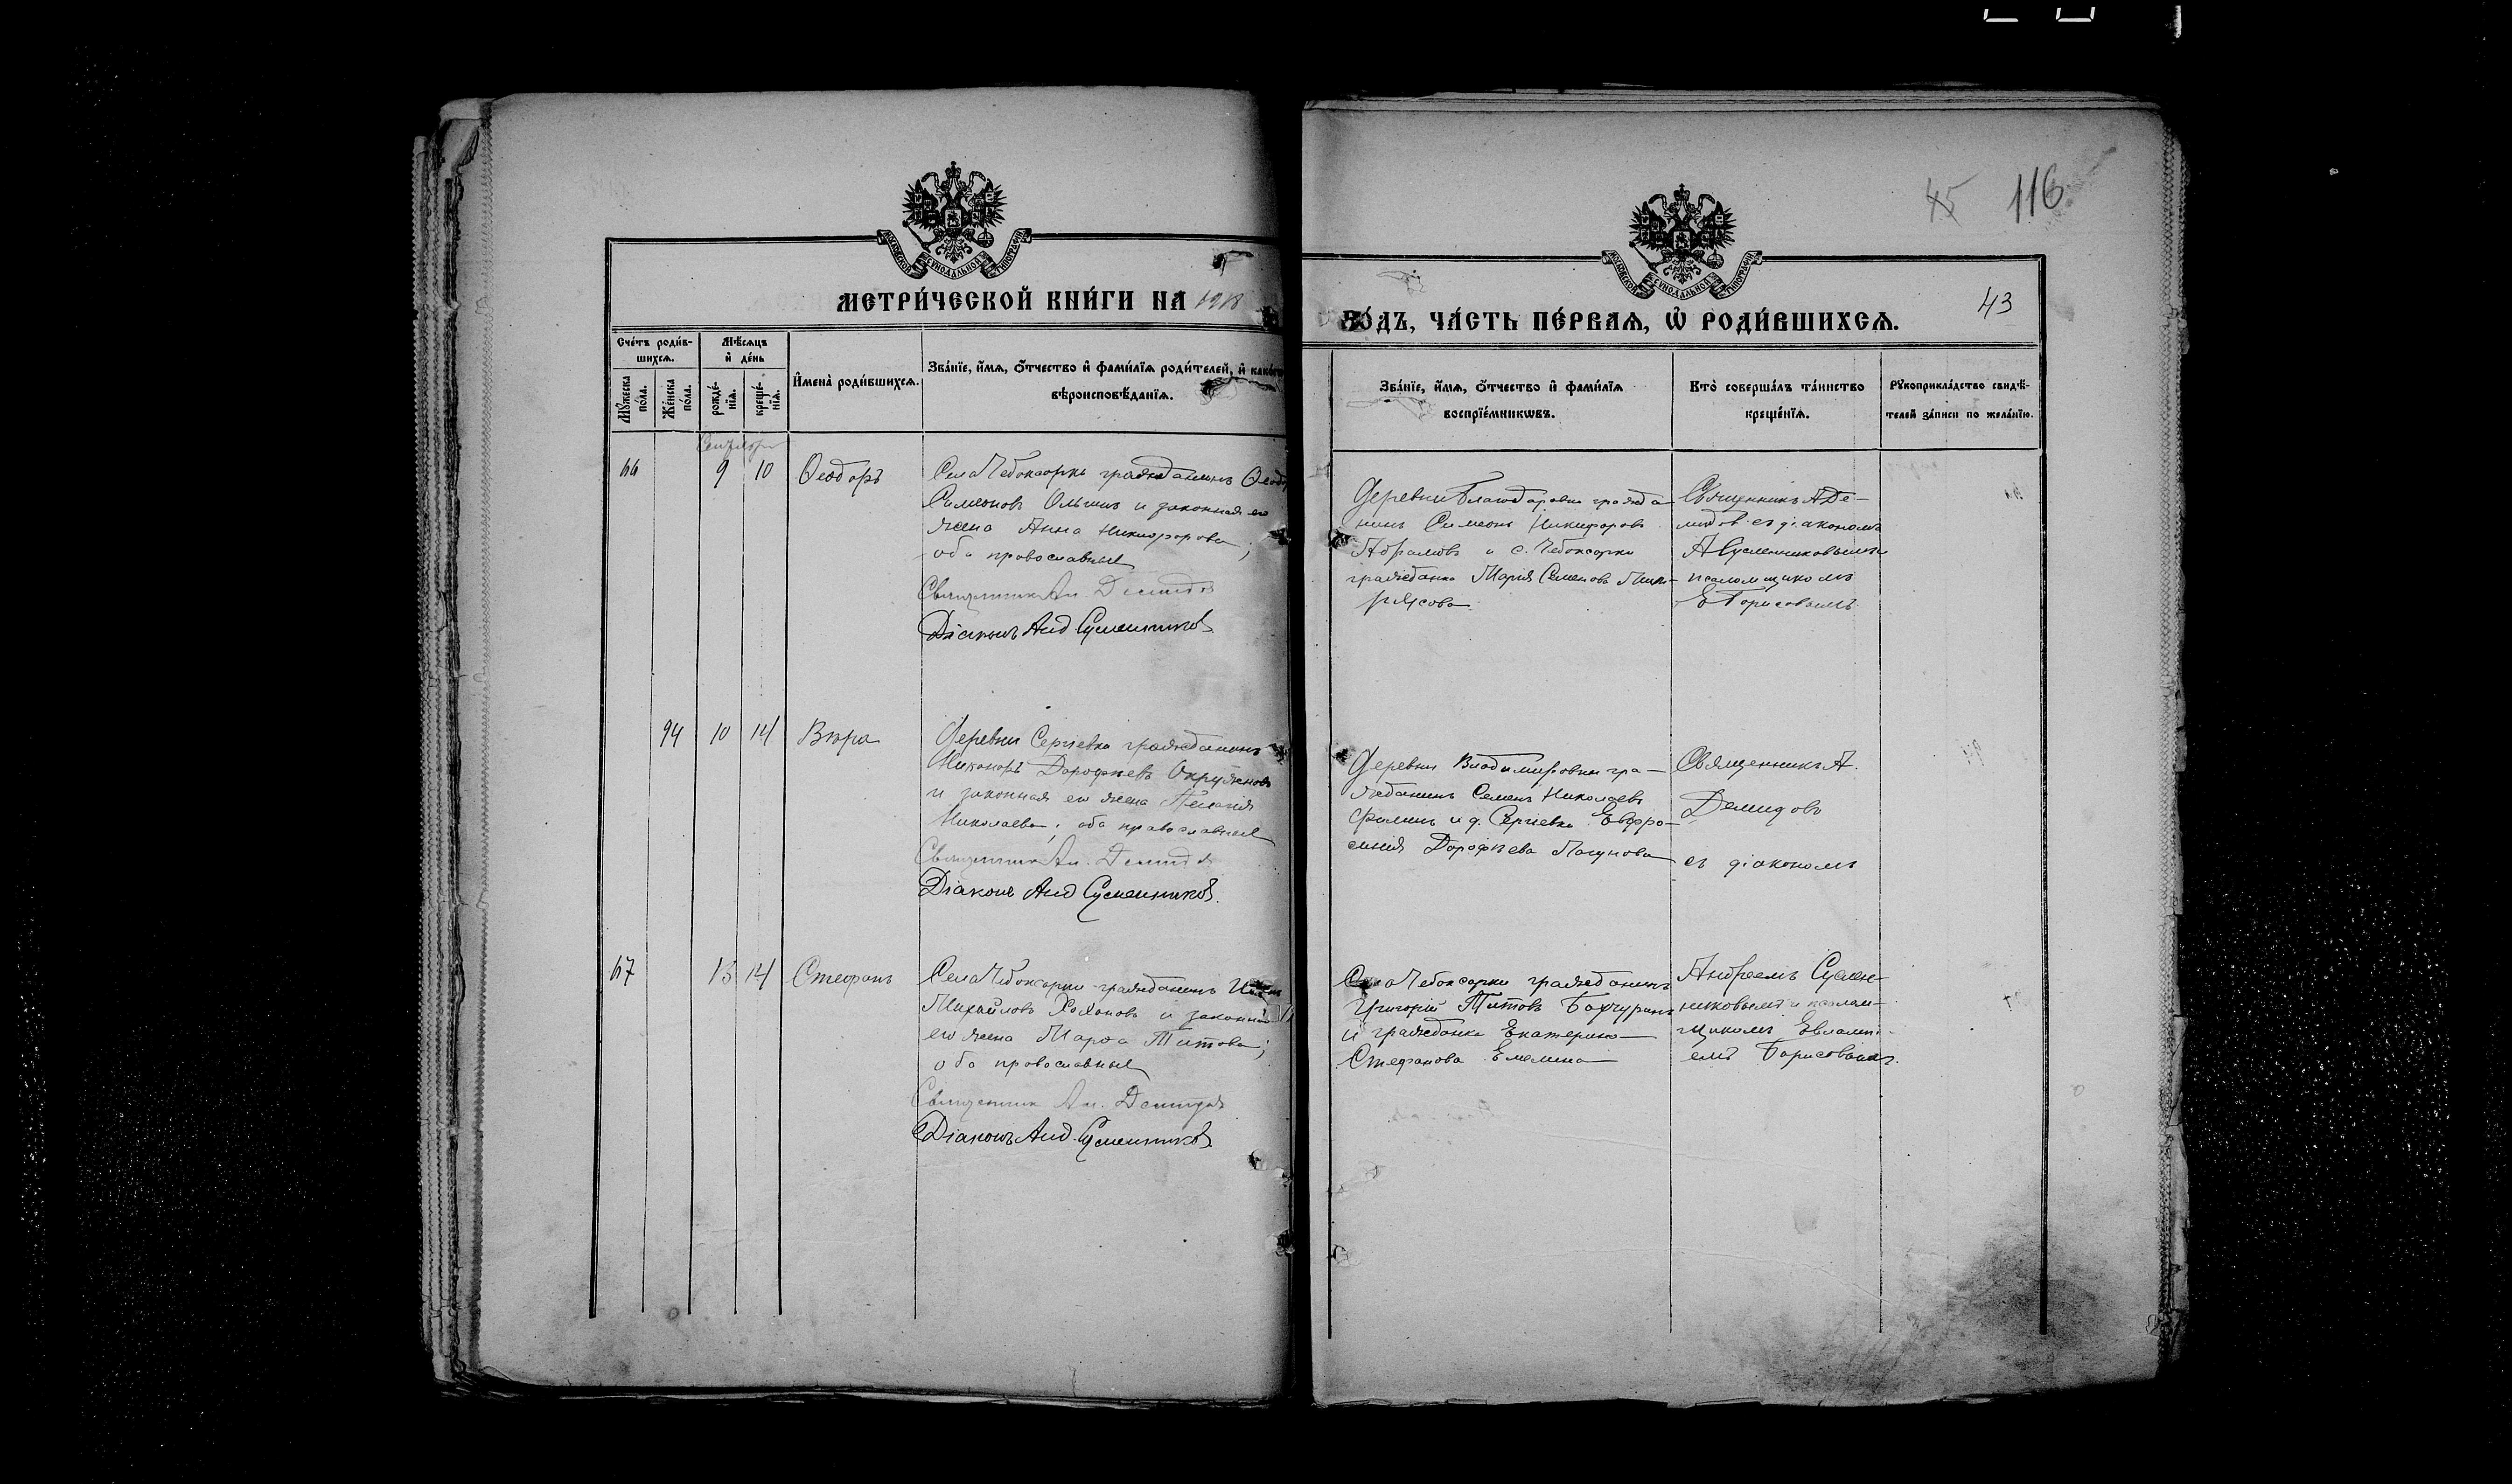 45 116
МОСКОВСКОЙ СѴНОДАЛЬНОЙ ТИПОГРАФІИ
МОСКОВСКОЙ СѴНОДАЛЬНОЙ ТИПОГРАФІИ
МЕТРИ́ЧЕСКОЙ КНИ́ГИ НА 1918
ГО́ДЪ, ЧА́СТЬ ПЕ́РВАѦ, Ѡ҆ РОДИ́ВШИХСѦ.
43
Сче́тъ роди́в-
шихсѧ.
Мꙋ́жеска
по́ла.
Же́нска
по́ла.
Мѣ́сѧцъ
и҆ де́нь
рожде́-
нїѧ.
креще́-
нїѧ.
И҆мена̀ роди́вшихсѧ.
Зва́нїе, и҆́мѧ, ѻ҆́тчество и҆ фами́лїѧ роди́телей, и҆ како́гѡ
вѣроисповѣ́данїѧ.
Зва́нїе, и҆́мѧ, ѻ҆́тчество и҆ фами́лїѧ
воспрїе́мникѡвъ.
Кто̀ соверша́лъ та́инство
креще́нїѧ.
Рꙋкоприкла́дство свидѣ́-
телей за́писи по жела́нїю.
Сентябрь
66 9 10 Ѳеодоръ
Села Чебоксарки гражданинъ
Симеоновъ и законная его
жена Анна Никифорова;
оба православные
Священникъ Ан. Демидовъ
Діаконъ Анд. Сусленниковъ
Деревни Благодаровки гражда-
нинъ Симеонъ Никифоровъ
Абрамовъ и с. Чебоксарки
гражданка Марія Семенова
Священникъ А Де-
мидовъ съ діакономъ
А Сусленниковымъ
псаломщикомъ
Е Борисовымъ
94 10 14 Вѣра
Деревни Сергіевки гражданинъ
Никоноръ Дорофѣевъ Окружновъ
и законная его жена Пелагія
Николаева; оба православные
Священникъ Ан. Демидовъ
Діаконъ Анд Сусленниковъ.
Деревни Владимировки гра-
жданинъ Семенъ Николаевъ
Филинъ и д. Сергіевки Евфро-
синія Дорофѣева
Священникъ А.
Демидовъ
съ діакономъ
67 13 14 Стефанъ
Села Чебоксарки гражданинъ
Михайловъ и законная
его жена Марѳа Титова;
оба православные
Священникъ Ан. Демидовъ
Діаконъ Анд. Сусленниковъ
Села Чебоксарки гражданинъ
Григорій Титовъ Бахчуринъ
и гражданка Екатерина
Стефанова Емелина
Андреемъ Суслен-
никовымъ и псалом-
щикомъ Евлампі-
емъ Борисовымъ.